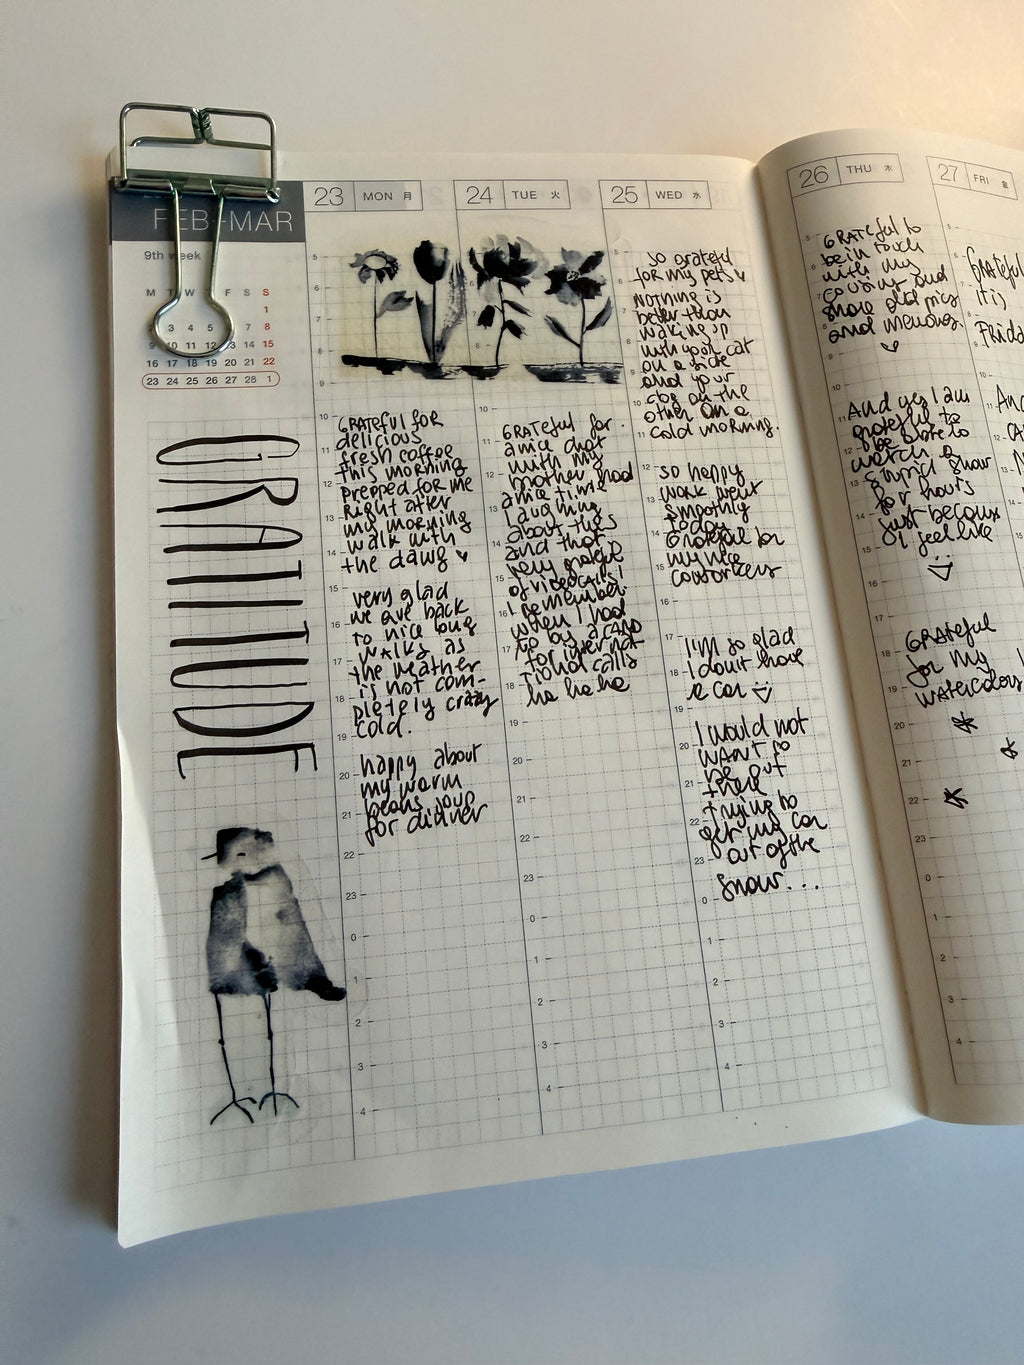 FEB-MAR
9th week
M T W F S S
1
3 4 5 7 8
9 10 11 12 13 14 15
16 17 18 19 20 21 22
23 24 25 26 27 28 1
GRATITUDE
23 MON 月
GRATEFUL FOR
delicious
fresh coffee
this morning
prepped for me
right after
my morning
walk with
the dawg ♥
very glad
we are back
to nice long
walks as
the weather
is not com-
pletely crazy
cold.
happy about
my warm
beans soup
for dinner
24 TUE 火
GRATEFUL for
a nice chat
with my
mother had
a nice time
laughing
about this
and that
very grateful
of videocalls!
I remember
when I had
to buy a card
for internat-
tional calls
ha ha ha
25 WED 水
so grateful
for my pets ♥
Nothing is
better than
waking up
with your cat
on a side
and your
dog on the
other on a
cold morning.
so happy
work went
smoothly
today
Grateful for
my nice
coworkers
I'm so glad
I don't have
a car
I would not
WANT to
be out
there
trying to
get my car
out of the
snow...
26 THU 木
GRATEFUL to
be in touch
with my
cousins and
share old pics
and memories
♥
And yes I am
grateful to
be able to
watch a
stupid show
for hours
just because
I feel like
GRATEFUL
for my
watercolors
27 FRI 金
GRATEFUL
It is
FRIDA